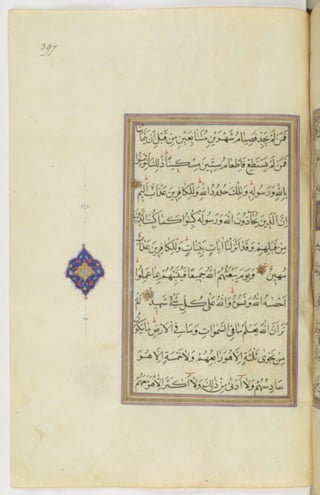 397
فمن لم يجد فصيام شهرين متتابعين من قبل ان يتماسا
فمن لم يستطع فاطعام ستين مسكينا ذلك لتؤمنوا
بالله ورسوله وتلك حدود الله وللكافرين عذاب اليم
ان الذين يحادون الله ورسوله كبتوا كما كبت الذين
من قبلهم وقد انزلنا آيات بينات وللكافرين عذاب
مهين يوم يبعثهم الله جميعا فينبئهم بما عملوا
احصيه الله ونسوه والله على كل شئ شهيد الم
تر ان الله يعلم ما في السموات وما في الارض ما يكون
من نجوى ثلثة الا هو رابعهم ولا خمسة الا هو
سادسهم ولا ادنى من ذلك ولا اكثر الا هو معهم